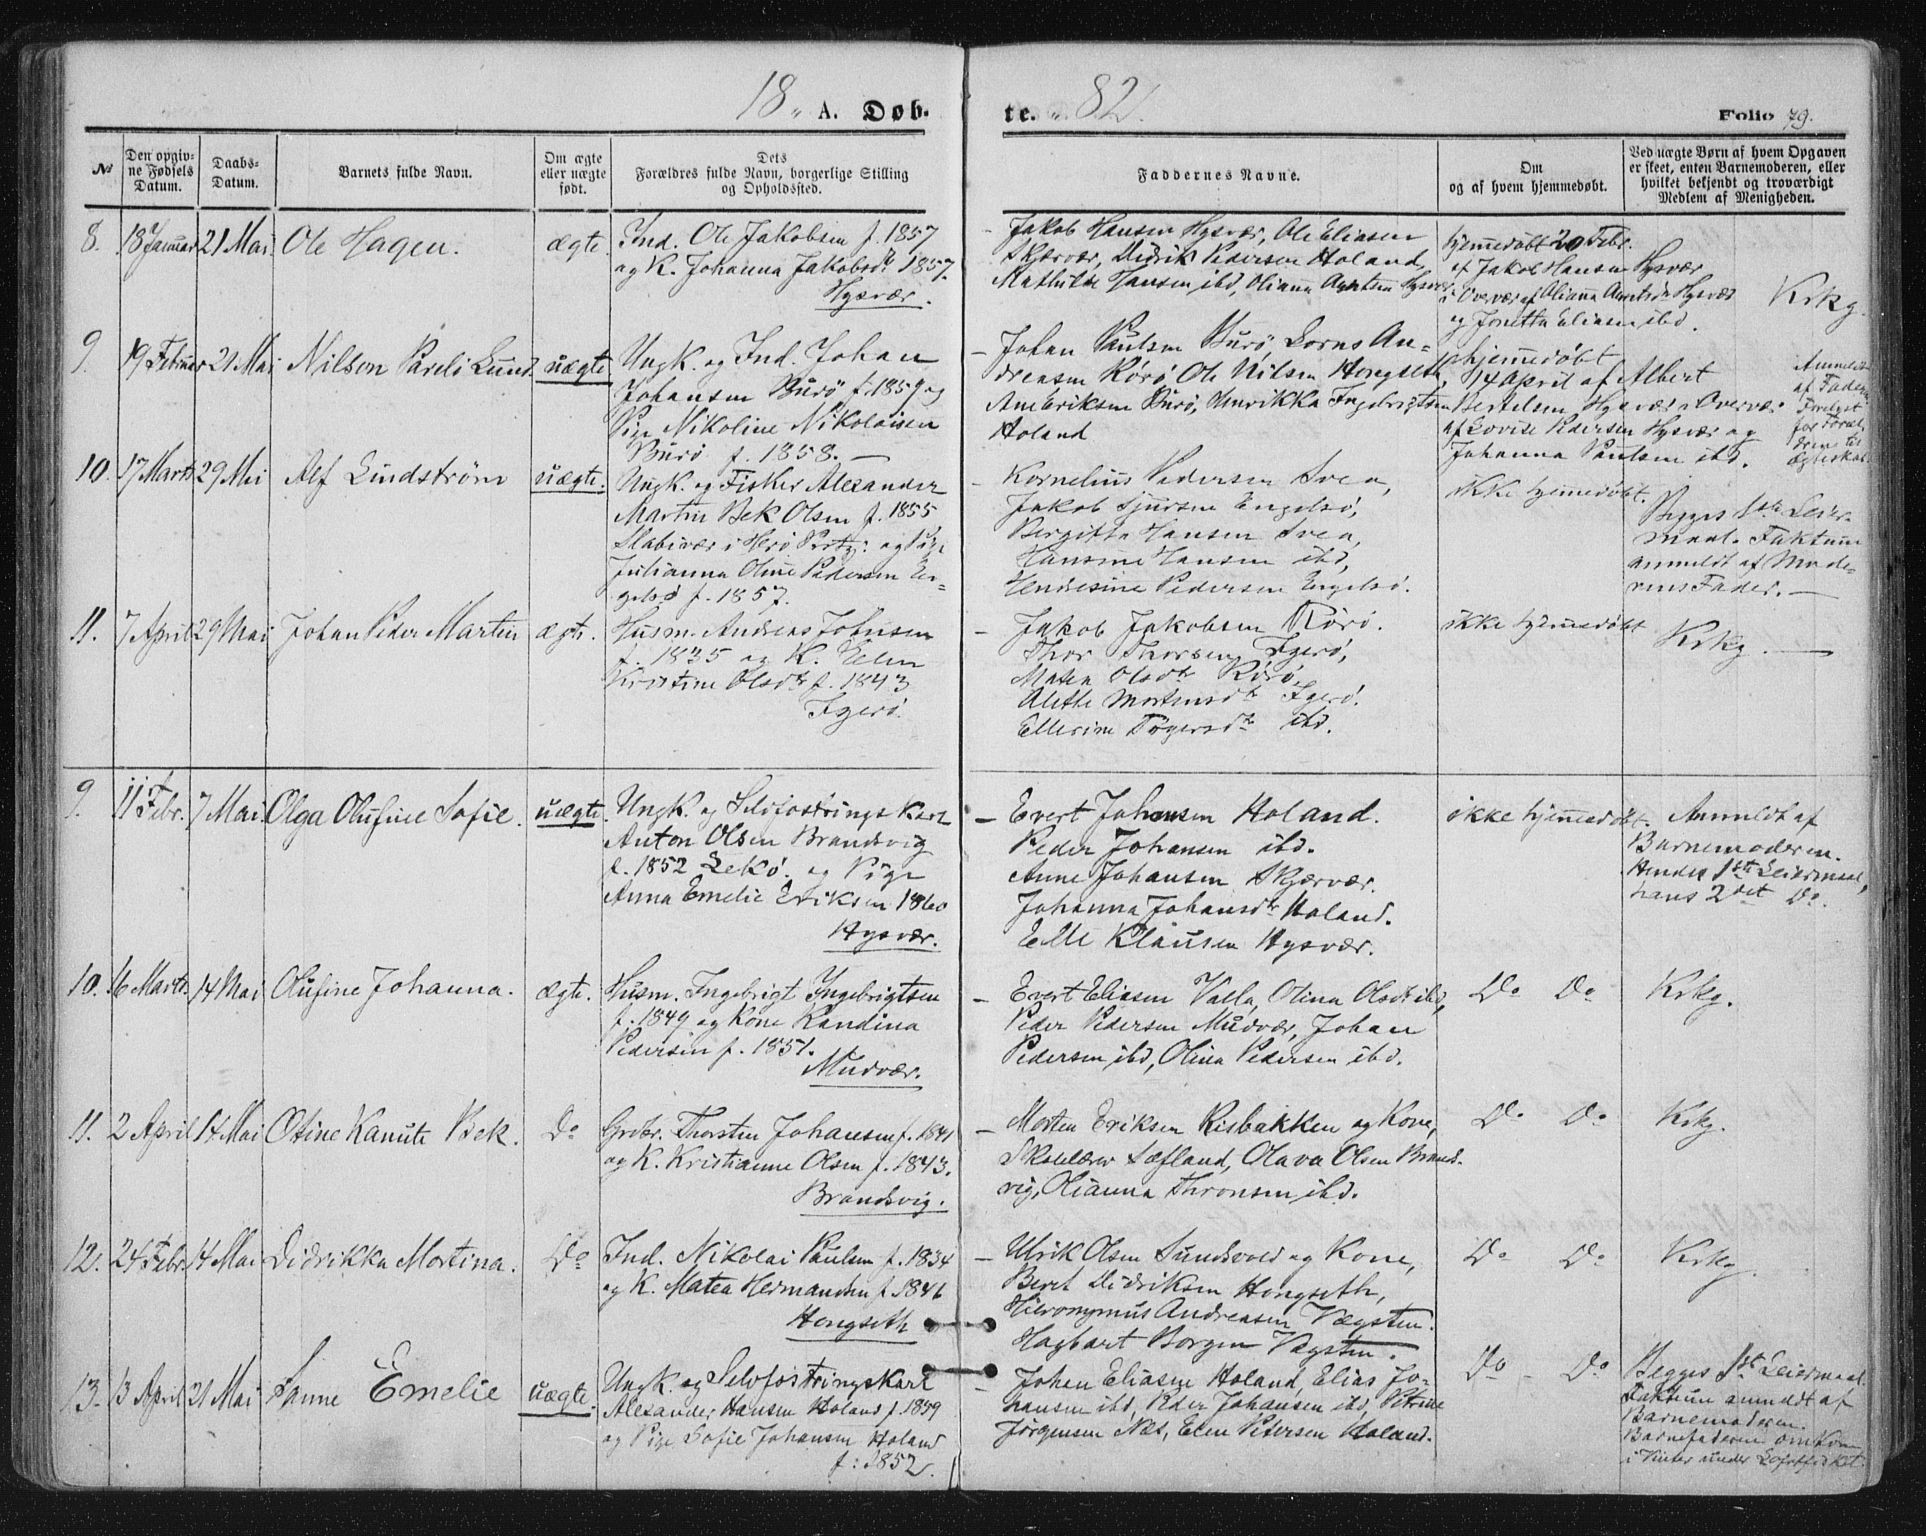 18 „ A. Døb-
te. „ 82.
Folio 79.
№
Den opgivne Fødsels Datum.
Daabs-Datum.
Barnets fulde Navn.
Om ægte eller uægte født.
Dets Forældres fulde Navn, borgerlige Stilling og Opholdssted.
Faddernes Navne.
Om og af hvem hjemmedøbt.
Ved uægte Børn af hvem Opgaven er skeet, enten Barnemoderen, eller hvilket bekjendt og troværdigt Medlem af Menigheden.
8. 18 Januar 21 Mai Ole Hagen. ægte.
Ind. Ole Jakobsen f. 1857
og K. Johanna Jakobsdr 1857.
Hysvær.
- Jakob Hansen Hysvær, Ole Eliasen
Skjærvær, Didrik Pedersen Holand,
Mathilde Hansen ibd, Oliana Arntsen Hysvær
hjemmedøbt 20 Febr.
af Jakob Hansen Hysvær
i Overvær af Olianna Arntsdr Hysvær
og Jonetta Eliasen ibd.
Krkg.
9. 19 Februar 21 Mai Nilson Pareli Lund uægte
Ungk. og Ind. Johan
Johansen Burø f. 1859 og
Pige Nikoline Nikolaisen
Burø f. 1858. —
- Johan Paulsen Burø, Lorns An-
dreasen Rørø Ole Nilsen Hongseth,
Ane Eriksen Burø, Henrikka Ingebrigtsen
Holand
hjemmedøbt
14 April af Albert
Bertelsen Hysvær i Overvær
af Lovise Pedersen Hysvær og
Johanna Paulsen ibd.
Anmeldt
af Faderen
Forelyst
for Foræl-
drene til
Ægteskab.
10. 17 Marts 29 Mai Alf Lindstrøm uægte.
Ungk. og Fisker Alexander
Martin Bek Olsen f. 1855
Slabivær i Herø Prstgj: og Pige
Julianna Oline Pedersen En-
gelsø f. 1857.
- Kornelius Pedersen Svea,
Jakob Sjursen Engelsø,
Bergitte Hansen Svea,
Hansine Hansen ibd,
Hendresine Pedersen Engelsø.
ikke hjemmedøbt.
Begges 1ste Leier-
maal. Faktum
anmeldt af Mode-
rens Fader. —
11. 7 April 29 Mai Johan Peder Martin ægte.
Husm. Andreas Johnsen
f. 1835 og K. Elen
Kristine Olsdtr f. 1843
Igerø.
- Jakob Jakobsen Rørø.
Thor Thorsen Igerø,
Matea Olsdtr Rørø,
Alette Mortensdtr Igerø.
Ellerine Tøgersdtr ibd.
ikke hjemmedøbt
Krkg. —
9. 11 Febr. 7 Mai. Olga Olufine Sofie. uægte.
Ungk. og Selvfostringskarl
Anton Olsen Brandsvig
f. 1852 Lekø. og Pige
Anna Emelie Eriksen 1860
Hysvær.
- Evert Johansen Holand.
Peder Johansen ibd.
Anne Johansen Skjærvær.
Johanna Johansdtr Holand.
Elle Klausen Hysvær.
ikke hjemmedøbt.
Anmeldt af
Barnemoderen.
Hendes 1ste Leiermaal,
hans 2det Do.
10. 16 Marts. 14 Mai Olufine Johanna. ægte.
Husm. Ingebrigt Ingebrigtsen
f. 1849 og Kone Randina
Pedersen f. 1851.
Mudvær.
- Evert Eliasen Valla, Olina Olsdtr ibd,
Peder Pedersen Mudvær, Johan
Pedersen ibd, Olina Pedersen ibd.
Do Do
Krkg.
11. 2 April 14 Mai Otine Kanute Bek. Do
Grbr. Thorsten Johansen f. 1841
og K. Kristianne Olsen f. 1843.
Brandsvig.
- Morten Eriksen Risbakken og Kone,
Skolelærer Sæfland, Olava Olsen Brands-
vig, Olianna Thronsen ibd.
Do Do
Krkg.
12. 24 Febr. 14 Mai Didrikka Mortina. Do
Ind. Nikolai Paulsen f. 1834
og K. Matea Hermansen f. 1846
Hongseth
- Ulrik Olsen Sundsvold og Kone,
Beret Didriksen Hongseth,
Hieronymus Andreasen Vægsten.
Hagbart Borgen Vægsten.
Do Do
Krkg.
13. 13 April 21 Mai Sanne Emelie uægte.
Ungk. og Selvfostringskarl
Alexander Hansen Holand f. 1859
og Pige Sofie Johansen Holand
f: 1852.
- Johan Eliasen Holand, Elias Jo-
hansen ibd, Peder Johansen ibd, Petrine
Jørgensen Næs, Elen Petersen Holand.
Do - Do
Begges 1ste Leiermaal
Faktum anmeldt af
Barnemoderen.
Barnefaderen omkom
i Vinter under Lofotfisket.